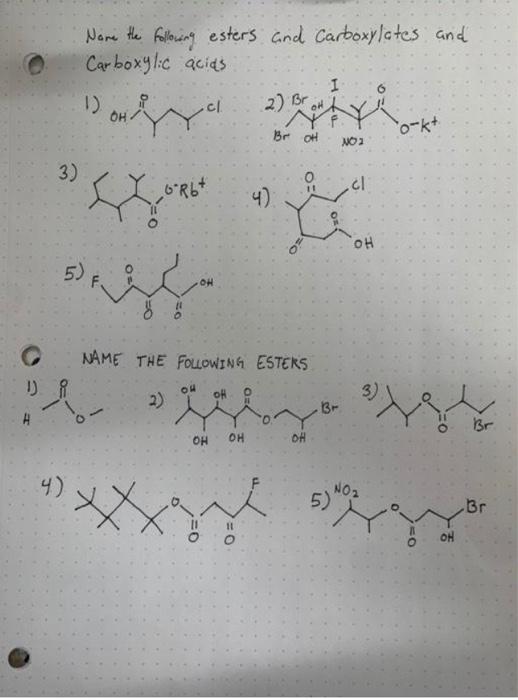 Name the following esters and Carboxylates and
Carboxylic acids
1) O OH Cl
2) Br Br OH OH I F NO2 O O-K+
3) O-Rb+ O
4) O Cl O O OH
5) F O O O OH
NAME THE FOLLOWING ESTERS
1) H O O
2) OH OH OH OH O O OH Br
3) O O Br
4) O O O F
5) NO2 O O OH Br